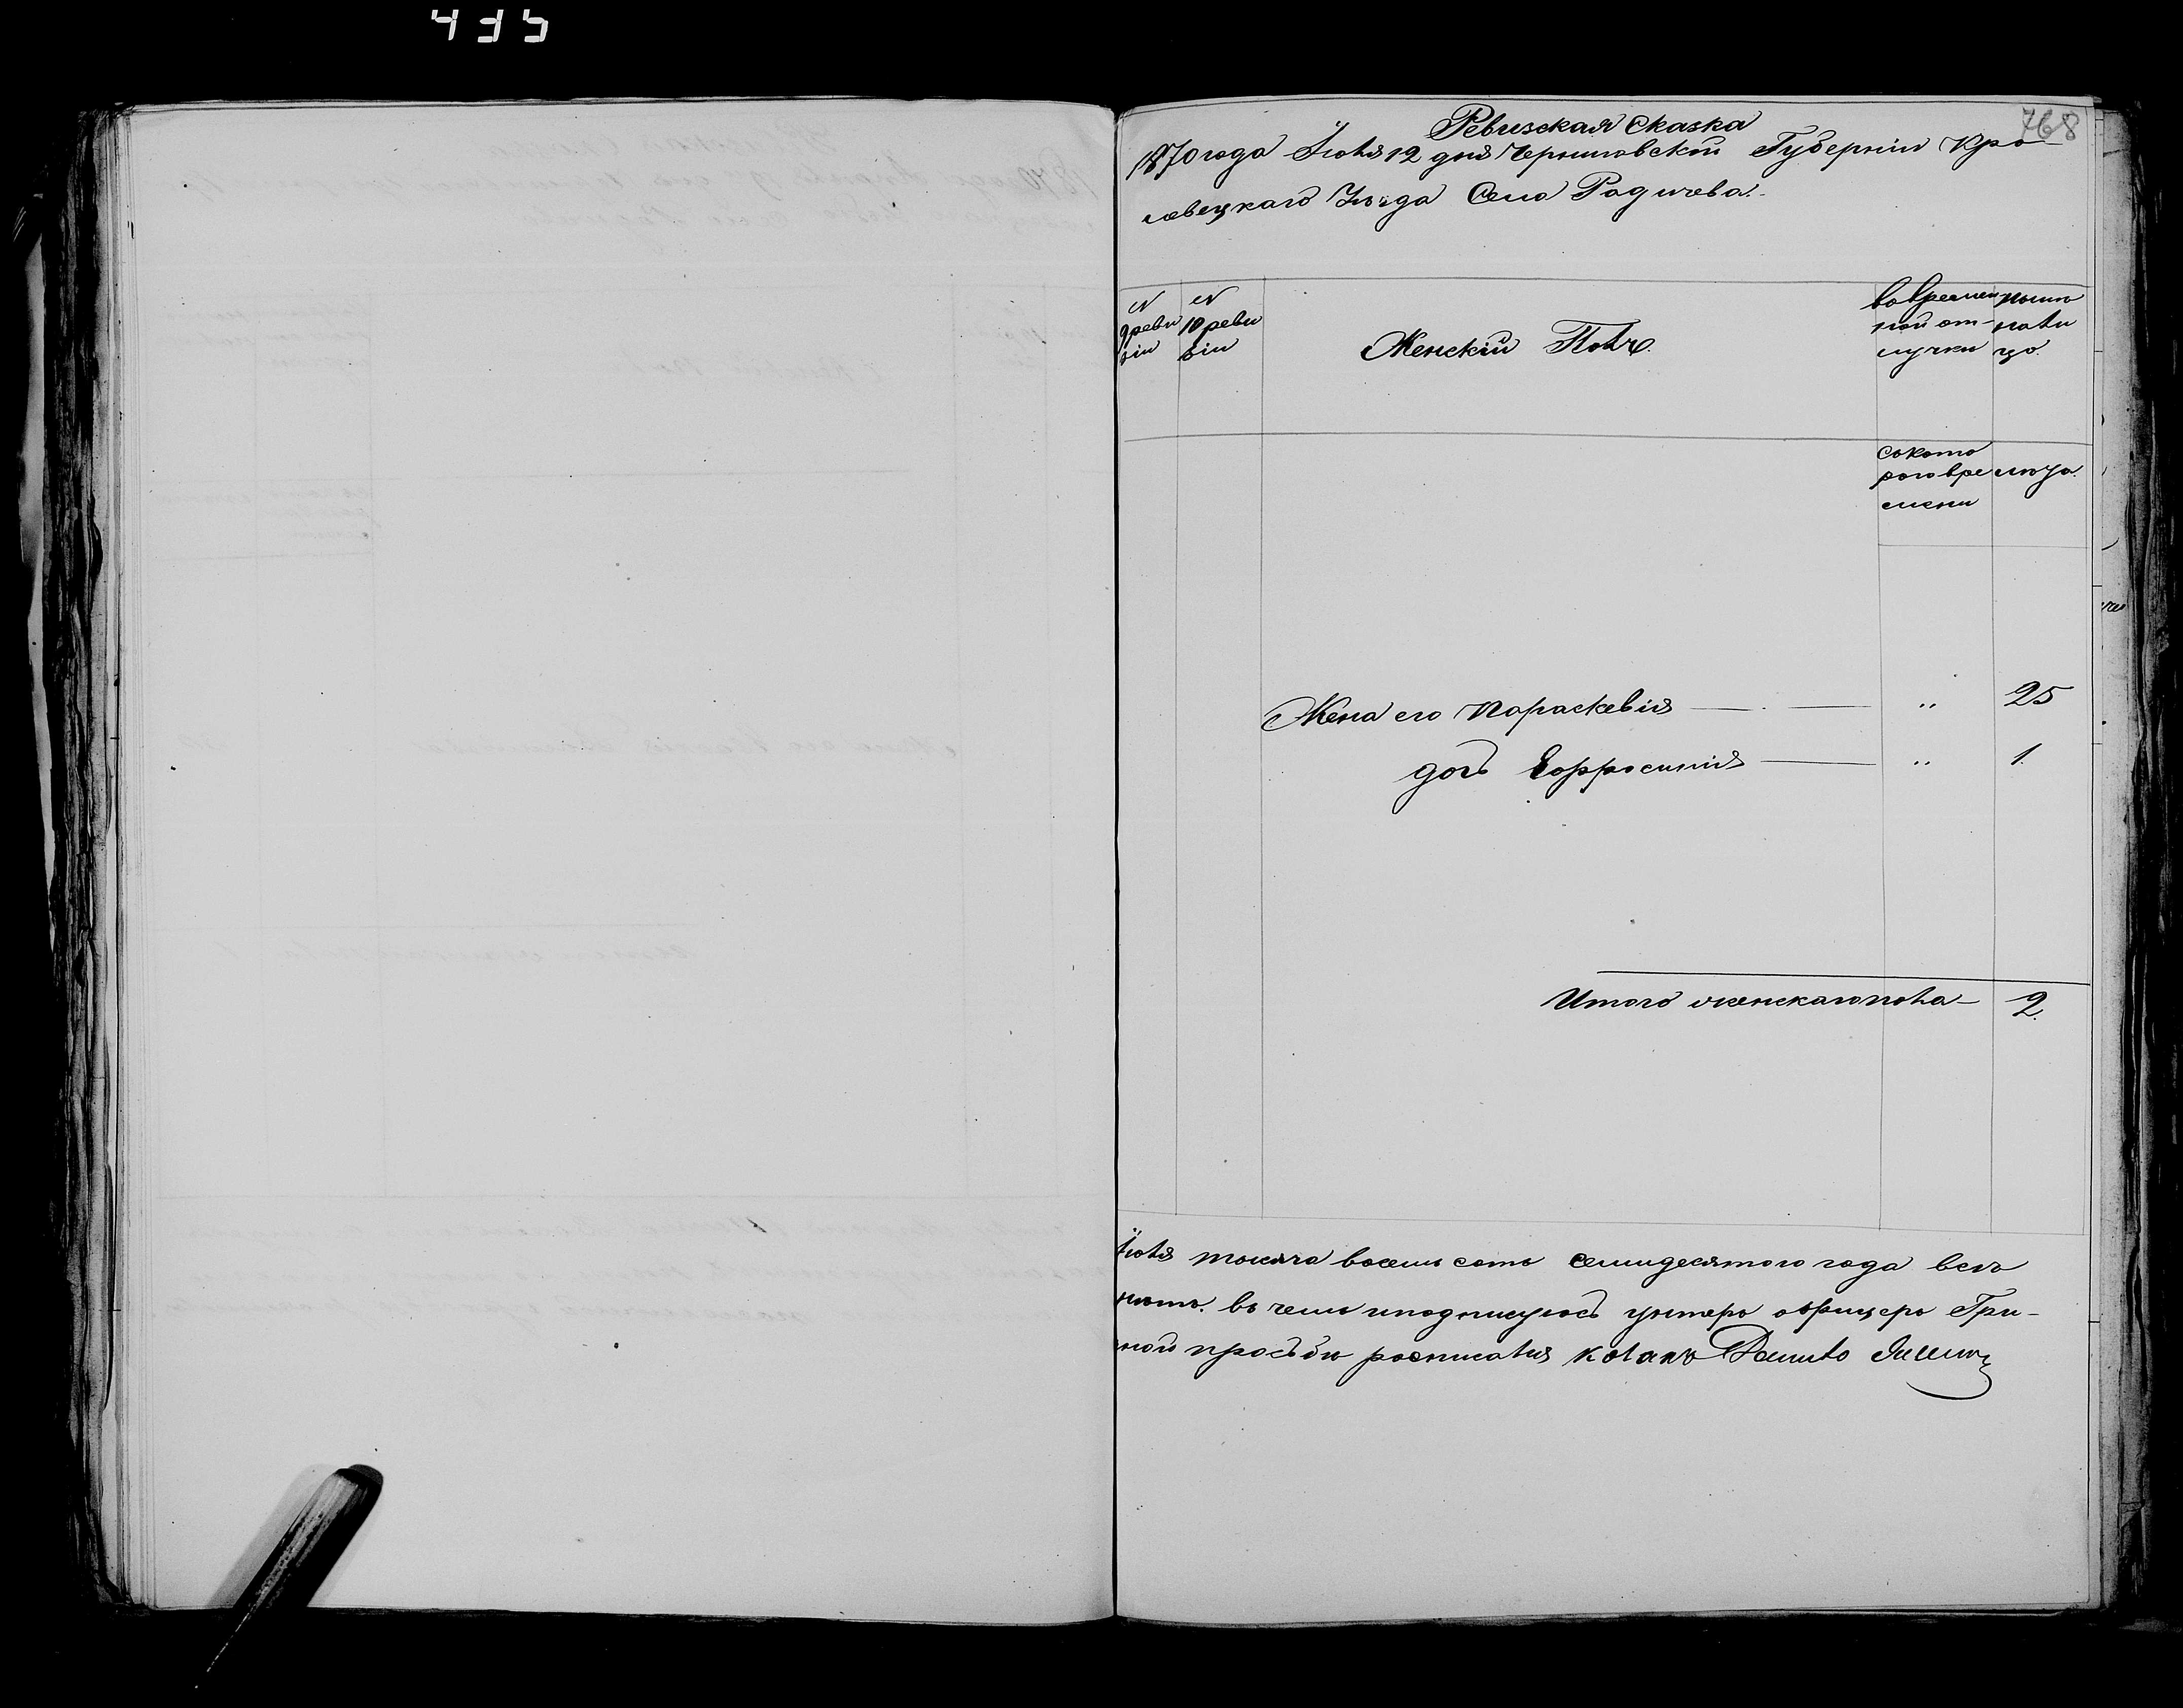 435
768
Ревизская Сказка
1870 года Іюля 12 дня Черниговской Губерніи Кро-
левецкаго Уѣзда Села Радичева.
N 9 ревизіи
N 10 ревизіи
Женскій Полъ
во времен
ной от-
лучки
нынѣ
нали
цо.
с кото
раго вре
мени
лѣта.
Жена его Параскевія — — „ 25
дочь Ефросинія — „ 1.
Итого женскаго пола — 2.
Іюля тысяча восемь сотъ семидесятого года
въ чемъ и подписуюсь унтеръ офицеръ Гри-
ной просьбѣ росписался козакъ Данило